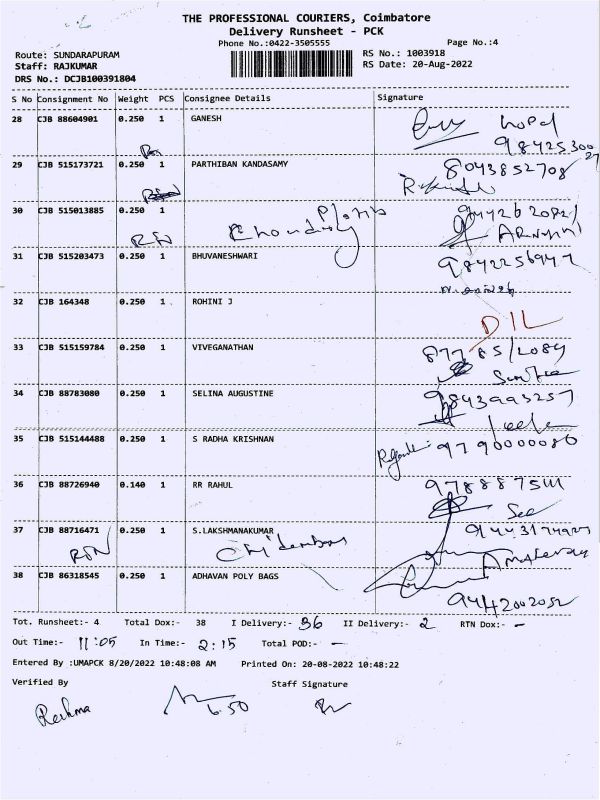 THE PROFESSIONAL COURIERS, Coimbatore
Delivery Runsheet - PCK
Phone No.:0422-3505555 Page No.:4
Route: SUNDARAPURAM RS No.: 1003918
Staff: RAJKUMAR RS Date: 20-Aug-2022
DRS No.: DCJB100391804
S No Consignment No Weight PCS Consignee Details Signature
28 CJB 88604901 0.250 1 GANESH
29 CJB 515173721 0.250 1 PARTHIBAN KANDASAMY 8043852708
30 CJB 515013885 0.250 1
31 CJB 515203473 0.250 1 BHUVANESHWARI 9842256947
32 CJB 164348 0.250 1 ROHINI J
DIL
33 CJB 515159784 0.250 1 VIVEGANATHAN
34 CJB 88783080 0.250 1 SELINA AUGUSTINE 9843993257
35 CJB 515144488 0.250 1 S RADHA KRISHNAN 9790000086
36 CJB 88726940 0.140 1 RR RAHUL
37 CJB 88716471 0.250 1 S.LAKSHMANAKUMAR
38 CJB 86318545 0.250 1 ADHAVAN POLY BAGS
9442002052
Tot. Runsheet:- 4 Total Dox:- 38 I Delivery:- 36 II Delivery:- 2 RTN Dox:- -
Out Time:- 11:05 In Time:- 2:15 Total POD:- -
Entered By :UMAPCK 8/20/2022 10:48:08 AM Printed On: 20-08-2022 10:48:22
Verified By Staff Signature
Reshma 6.50